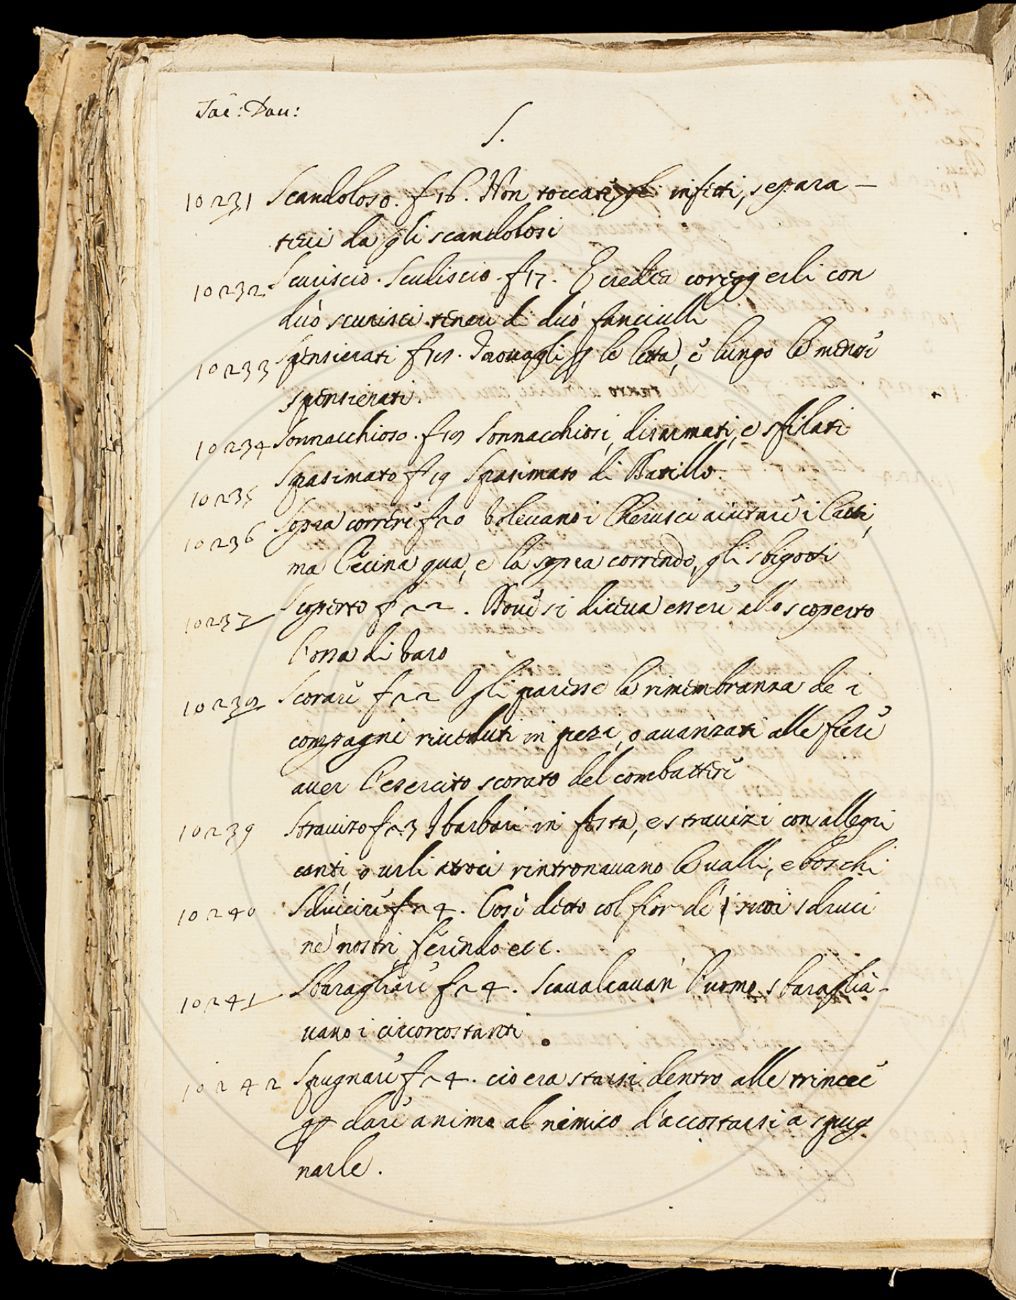 Tac: Dau:
S.
10231 Scandoloso. f 16. Non toccati gl' infetti, separa-
tevi da gli scandolosi
10232 Scuriscio. Scudiscio. f 17. E credea correggerli con
duò scurisci teneri di duò fanciulli
10233 Spensierati f 19. Travagli per le letta, e lungo le mense
spensierati.
10234 Sonnacchioso. f 19 Sonnacchiosi, disarmati, e sfilati
10235 Spasimato f 19 Spasimato di Batillo.
10236 Sopra correre f 20 Volevano i Cherusci aiutare i Catti,
ma Cecina qua, e là sopra correndo, gli sbigottì
10237 Scoperto f 22. Dove si diceva essere allo scoperto
l'ossa di Varo
10238 Scorare f 22 O gli paresse la rimembranza de i
compagni riuduti in pezzi, o avanzati alle fiere
aver l'esercito scorato del combattere
10239 Stravizo f 23 I barbari in festa, e stravizi con allegri
canti, o urli atroci rintronavano le valli, e boschi
10240 Sdrucire f 24. Così detto col fior de' suoi sdruci
ne' nostri, ferendo ecc.
10241 Sbaragliare f 24. Scavalcavan l'uomo, sbaraglia-
vano i circorcostanti
10242 Spugnare f 24. ciò era starsi dentro alle trincee
per dare animo al nimico d'accostarsi a spug
narle.